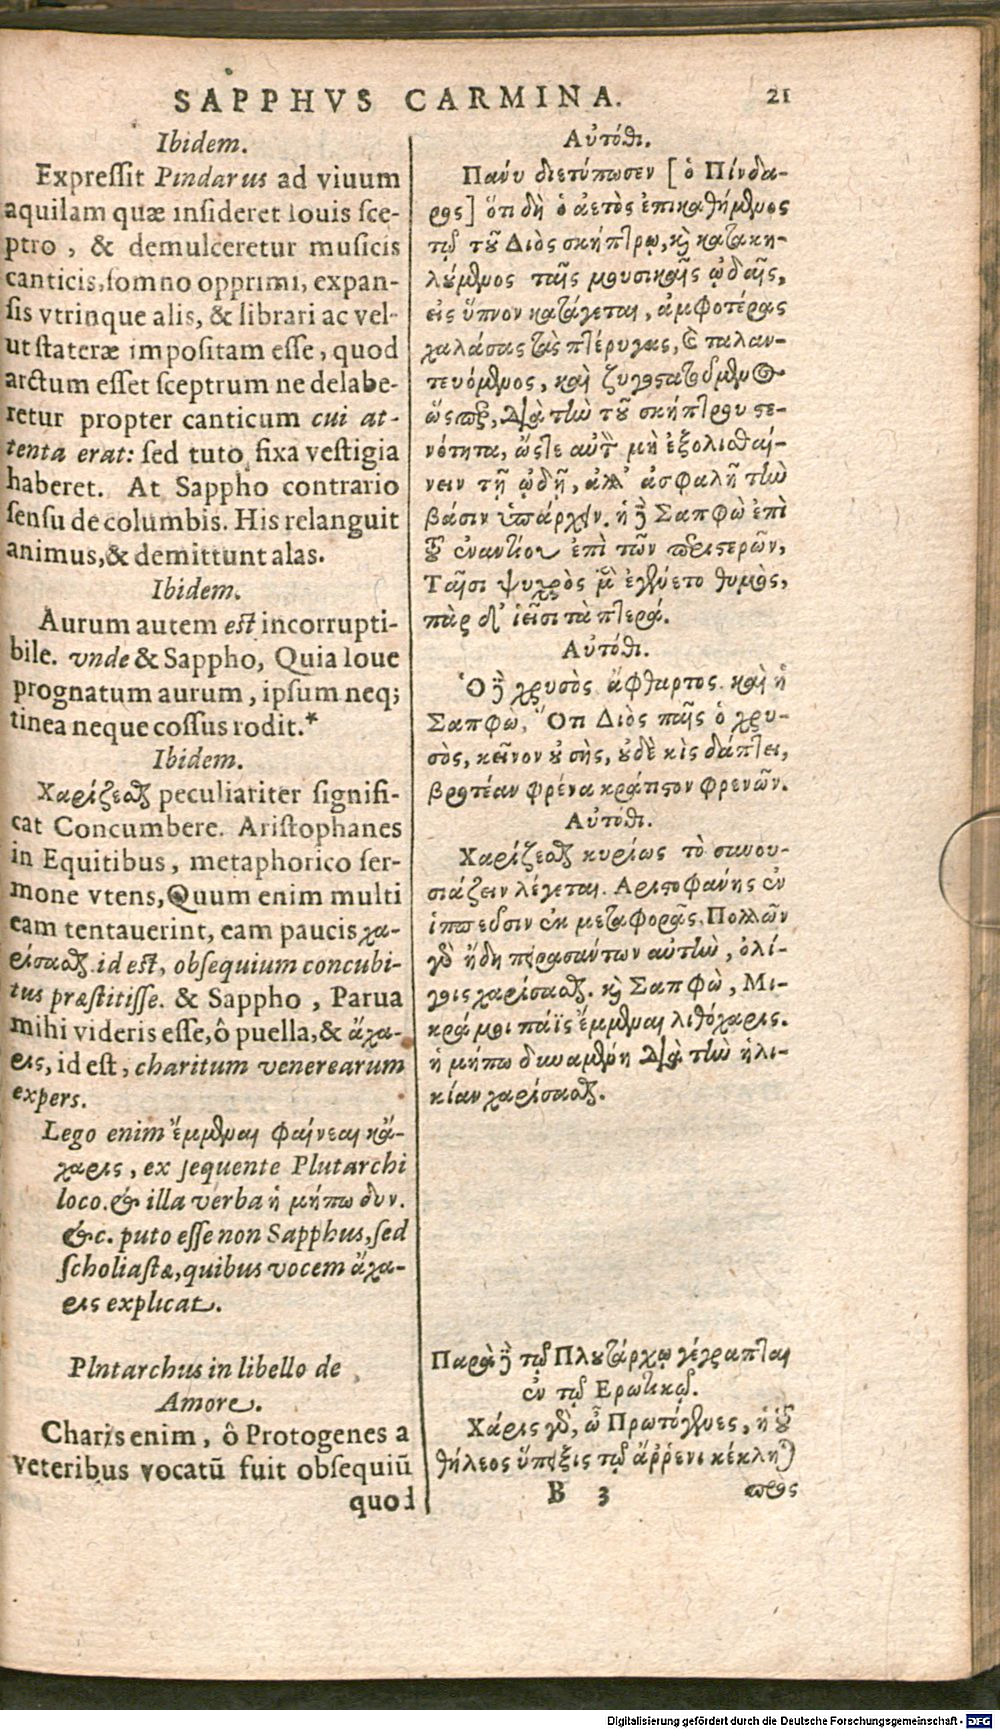 SAPPHVS CARMINA. 21
Ibidem.
Expressit Pindarus ad viuum
aquilam quæ insideret Iouis sce-
ptro, & demulceretur musicis
canticis, somno opprimi, expan-
sis vtrinque alis, & librari ac vel-
ut stateræ impositam esse, quod
arctum esset sceptrum ne delabe-
retur propter canticum cui at-
tenta erat: sed tuto fixa vestigia
haberet. At Sappho contrario
sensu de columbis. His relanguit
animus, & demittunt alas.
Ibidem.
Aurum autem est incorrupti-
bile. vnde & Sappho, Quia Ioue
prognatum aurum, ipsum neq;
tinea neque cossus rodit.*
Ibidem.
Χαρίζεσθαι peculiariter signifi-
cat Concumbere. Aristophanes
in Equitibus, metaphorico ser-
mone vtens, Quum enim multi
eam tentauerint, eam paucis χα-
ρίσασθαι id est, obsequium concubi-
tus præstitisse. & Sappho, Parua
mihi videris esse, ô puella, & ἄχα-
ρις, id est, charitum venerearum
expers.
Lego enim ἔμμεναι φαίνεαι κἄ-
χαρις, ex sequente Plutarchi
loco. & illa verba ἡ μήπω δυν.
&c. puto esse non Sapphus, sed
scholiastæ, quibus vocem ἄχα-
ρις explicat.
Plntarchus in libello de
Amore.
Charis enim, ô Protogenes a
veteribus vocatū fuit obsequiū
quod
Αὐτόθι.
Πάνυ διετύπωσεν [ὁ Πίνδα-
ρος] ὅτι δὴ ὁ ἀετὸς ἐπικαθήμενος
τῷ τοῦ Διὸς σκήπτρῳ, καὶ κατακη-
λούμενος ταῖς μουσικαῖς ᾠδαῖς,
εἰς ὕπνον κατάγεται, ἀμφοτέρας
χαλάσας τὰς πτέρυγας, καὶ παλαν-
τευόμενος, καὶ ζυγοστατούμενος
ὥσπερ, διὰ τὴν τοῦ σκήπτρου στε-
νότητα, ὥστε αὐτὸν μὴ ἐξολισθαί-
νειν τῇ ᾠδῇ, ἀλλ' ἀσφαλῆ τὴν
βάσιν ὑπάρχειν. ἡ δὲ Σαπφὼ ἐπὶ
τοῦ ἐναντίου ἐπὶ τῶν περιστερῶν,
Ταῖσι ψυχρὸς μὲν ἐγένετο θυμὸς,
πὰρ δ' ἱεῖσι τὰ πτερά.
Αὐτόθι.
Ὁ δὲ χρυσὸς ἄφθαρτος. καὶ ἡ
Σαπφὼ, Ὅτι Διὸς παῖς ὁ χρυ-
σὸς, κεῖνον οὐ σὴς, οὐδὲ κὶς δάπτει,
βροτέαν φρένα κράτιστον φρενῶν.
Αὐτόθι.
Χαρίζεσθαι κυρίως τὸ συνου-
σιάζειν λέγεται. Αριστοφάνης ἐν
ἱππεῦσιν ἐκ μεταφορᾶς. Πολλῶν
γὰρ ἤδη πειρασάντων αὐτὴν, ὀλί-
γοις χαρίσασθαι. καὶ Σαπφὼ, Μι-
κρά μοι πάϊς ἔμμεναι λιθόχαρις.
ἡ μήπω δυναμένη διὰ τὴν ἡλι-
κίαν χαρίσασθαι.
Παρὰ δὲ τῷ Πλουτάρχῳ γέγραπται
ἐν τῷ Ερωτικῷ.
Χάρις γὰρ, ὦ Πρωτόγενες, ἡ τοῦ
θήλεος ὕπειξις τῷ ἄῤῥενι κέκληται
B 3 προς
Digitalisierung gefördert durch die Deutsche Forschungsgemeinschaft - DFG